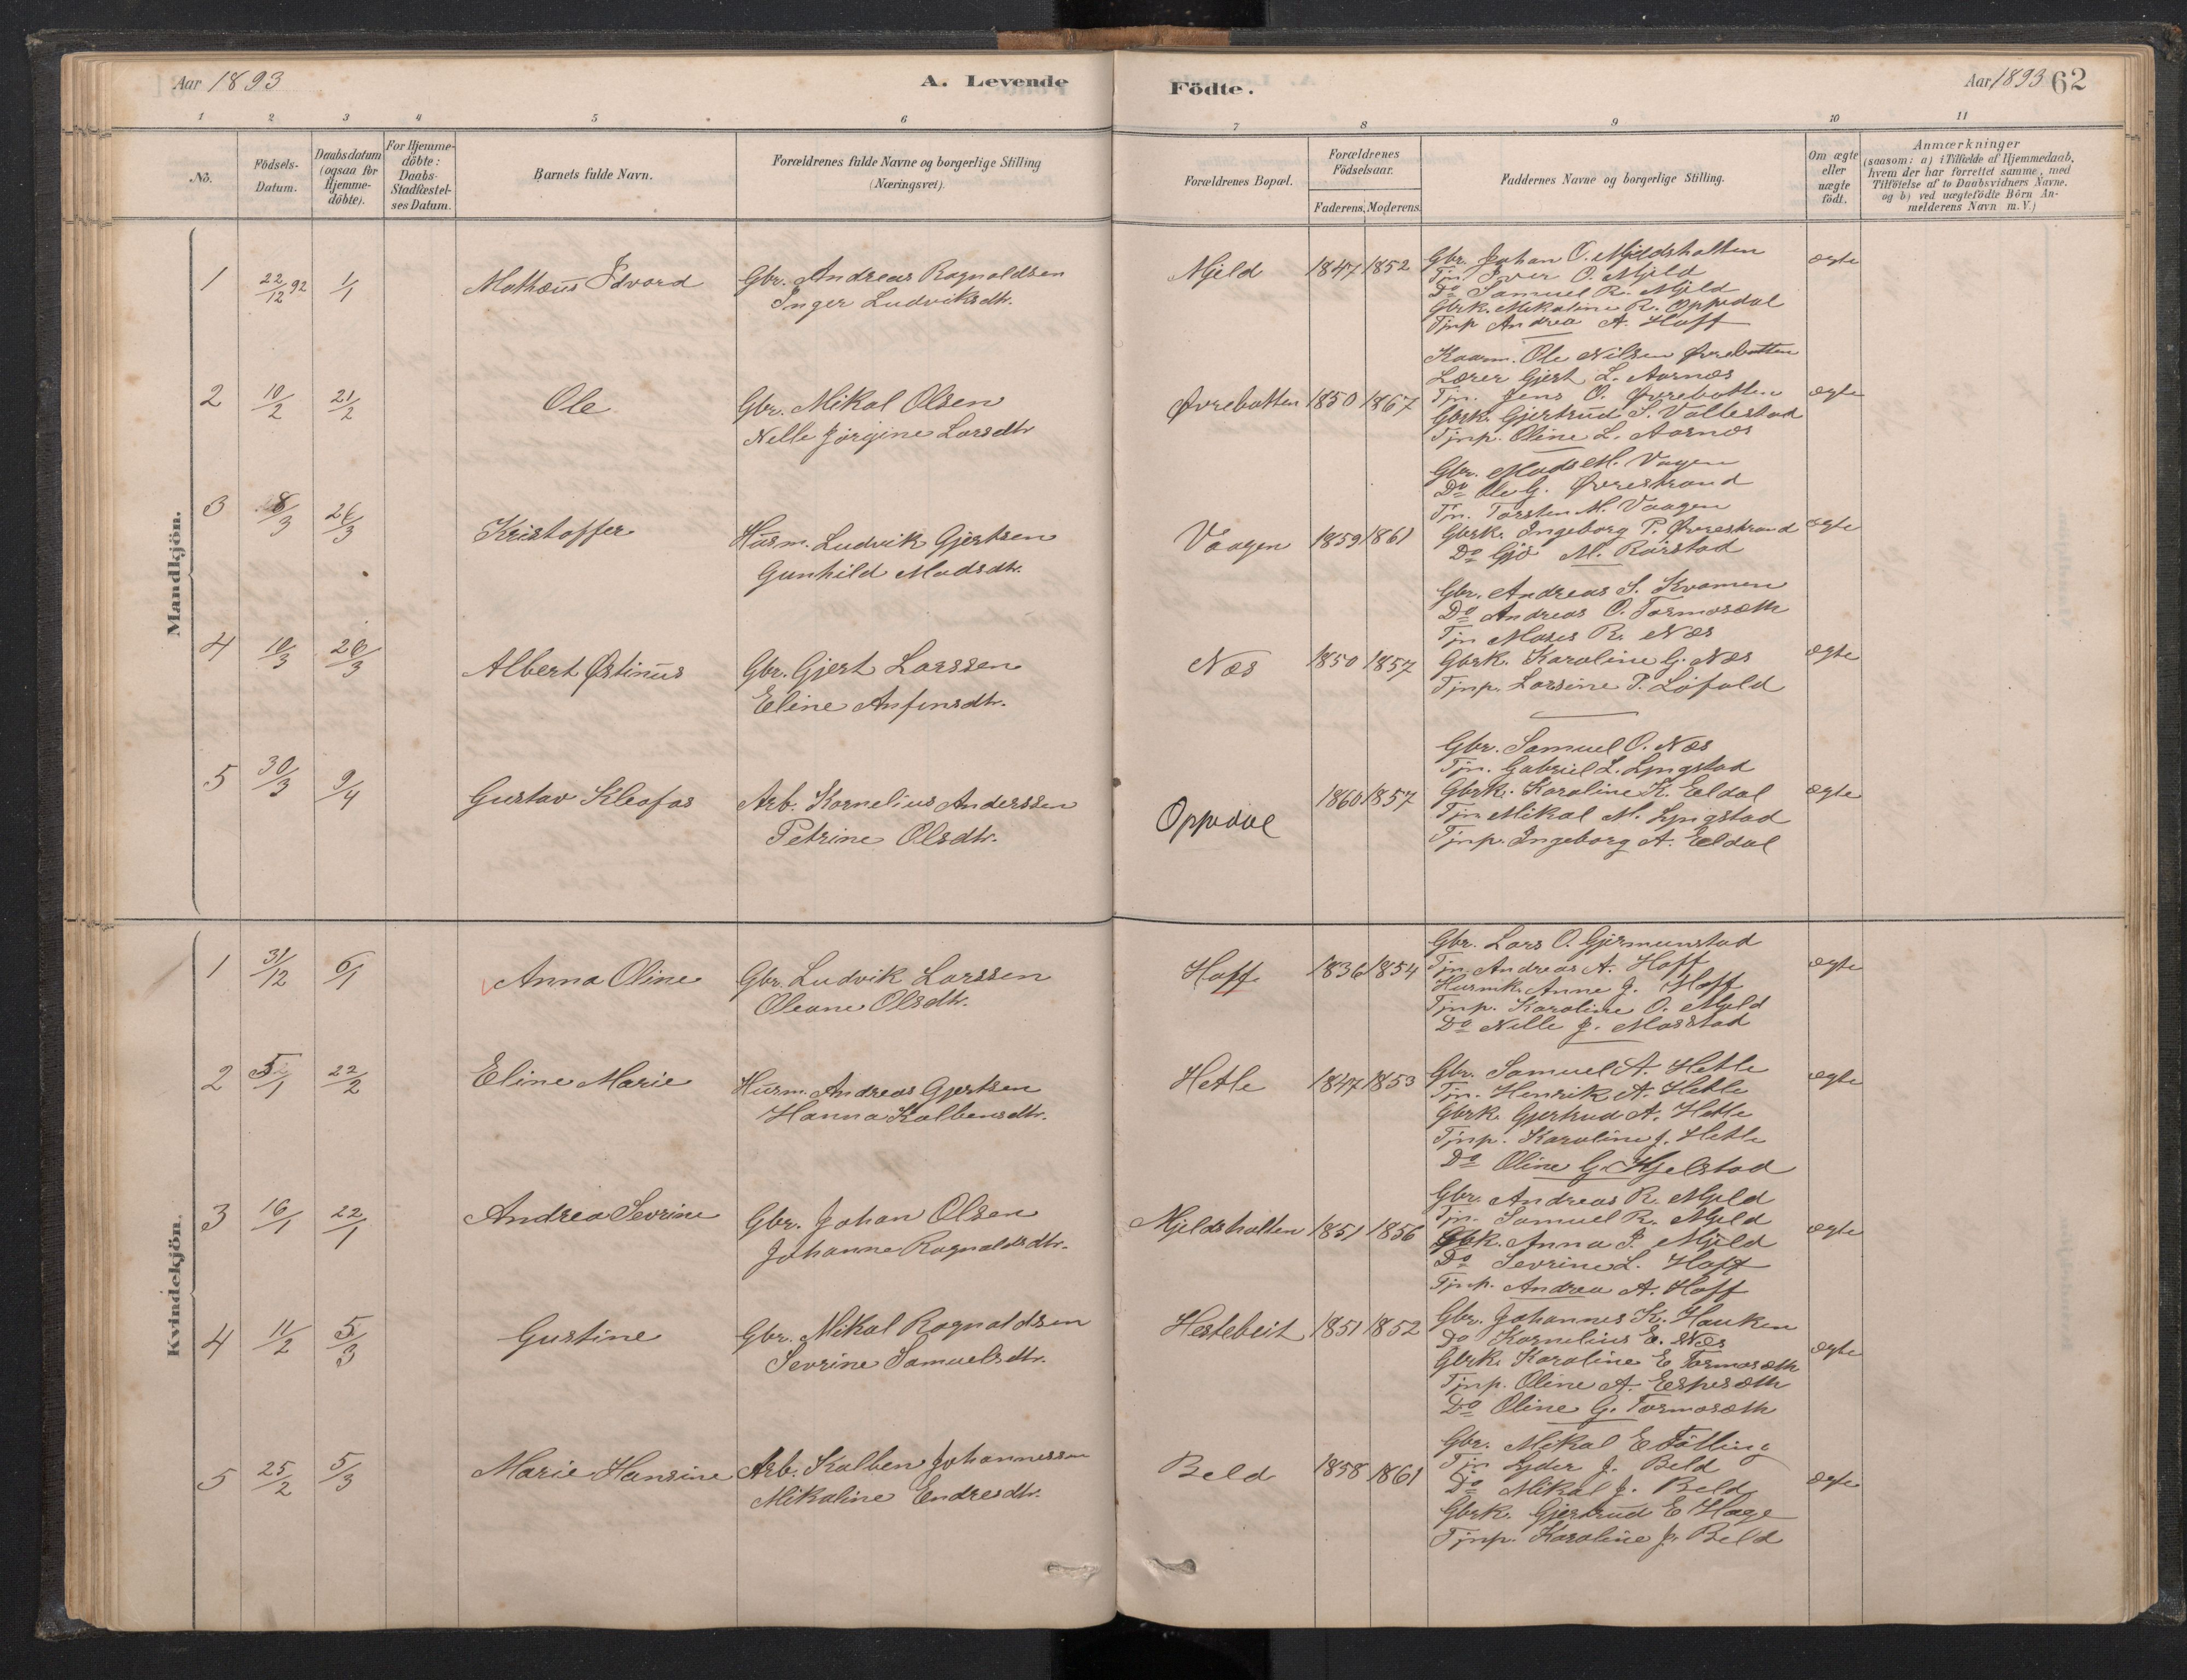 Aar 1893
A. Levende
Födte.
Aar 1893 62
1 2 3 4 5 6 7 8 9 10 11
No.
Födsels-Datum.
Daabsdatum (ogsaa for Hjemme-döbte).
For Hjemme-döbte: Daabs-Stadfæstel-ses Datum.
Barnets fulde Navn.
Forældrenes fulde Navne og borgerlige Stilling (Næringsvei).
Forældrenes Bopæl.
Forældrenes Födselsaar.
Faderens. Moderens.
Faddernes Navne og borgerlige Stilling.
Om ægte eller uægte födt.
Anmærkninger
(saasom: a) i Tilfælde af Hjemmedaab,
hvem der har forrettet samme, med
Tilföielse af to Daabsvidners Navne.
og b) ved uægtefödte Börn An-
melderens Navn m. V.)
Mandkjön.
1 22/12 92 1/1 Mathæus Edvard Gbr. Andreas Ragnaldsen
Inger Ludviksdtr.
Mjeld 1847 1852 ægte
Gbr. Johan O. Mjeldshatten
Tjn. Iver O. Mjeld
Do Samuel R. Mjeld
Gbrk. Mikaline R. Oppedal
Tjnp Andrea A. Hoff
2 10/2 21/2 Ole Gbr. Mikal Olsen
Nelle Jörgine Larsdtr
Øvrebotten 1850 1867 ægte
Kaarm. Ole Nilsen Øvrebotten
Lærer Gjert L. Aarnæs
Tjn. Jens O. Øvrebotten
Gbrk. Gjertrud S. Vallestad
Tjnp. Oline L. Aarnæs
3 8/3 26/3 Kristoffer Husm. Ludvik Gjertsen
Gunhild Madsdtr.
Vaagen 1859 1861 ægte
Gbr. Mads M. Vagen
Do Ole G. Øvrestrand
Tjn. Torsten M. Vaagen
Gbrk. Ingeborg P. Øvrestrand
Do Gjö M. Rörstad
4 10/3 26/3 Albert Østinus Gbr. Gjert Larssen
Eline Anfinsdtr.
Næs 1850 1857 ægte
Gbr. Andreas S. Kvamen
Do Andreas O. Tormosæth
Tjn Moses R. Næs
Gbrk. Karoline G. Næs
Tjnp. Larsine P. Löfald
5 30/3 9/4 Gustav Kleofas Arb. Kornelius Anderssen
Petrine Olsdtr.
Oppedal 1860 1857 ægte
Gbr. Samuel O. Næs
Tjn. Gabriel L. Lyngstad
Gbrk. Karoline K. Eldal
Tjn Mikal M. Lyngstad
Tjnp. Ingeborg A. Eldal
Kvindekjön.
1 31/12 6/1 Anna Oline Gbr. Ludvik Larssen
Oleane Olsdtr.
Hoff 1836 1854 ægte
Gbr. Lars O. Gjermunstad
Tjn. Andreas A. Hoff
Husmk. Anne J. Hoff
Tjnp. Karoline O. Mjeld
Do Nille J. Masstad
2 5/1 22/2 Eline Marie Husm. Andreas Gjertsen
Hanna Kolbensdtr.
Hetle 1847 1853 ægte
Gbr. Samuel A. Hetle
Tjn. Henrik A. Hetle
Gbrk. Gjertrud A. Hetle
Tjnp. Karoline J. Hetle
Do Oline G. Hjelstad
3 16/1 22/1 Andrea Sevrine Gbr. Johan Olsen
Johanne Ragnaldsdtr.
Mjeldshatten 1851 1856 ægte
Gbr. Andreas R. Mjeld
Tjn. Samuel R. Mjeld
Gbk. Anna I. Mjeld
Do Sevrine L. Hoff
Tjnp. Andrea A. Hoff
4 11/2 5/3 Gustine Gbr. Mikal Ragnaldsen
Sevrine Samuelsdtr.
Hestebeit 1851 1852 ægte
Gbr. Johannes K. Hauken
Do Kornelius E. Næs
Gbrk. Karoline E Tormosæth
Tjnp. Oline A. Espesæth
Do Oline G. Tormosæth
5 25/2 5/3 Marie Hansine Arb. Kolben Johannessen
Mikaline Endresdtr.
Beld 1858 1861 ægte
Gbr. Mikal E
Tjn Lyder J. Beld
Do Mikal J. Beld
Gbrk. Gjertrud E Hage
Tjnp. Karoline J. Beld